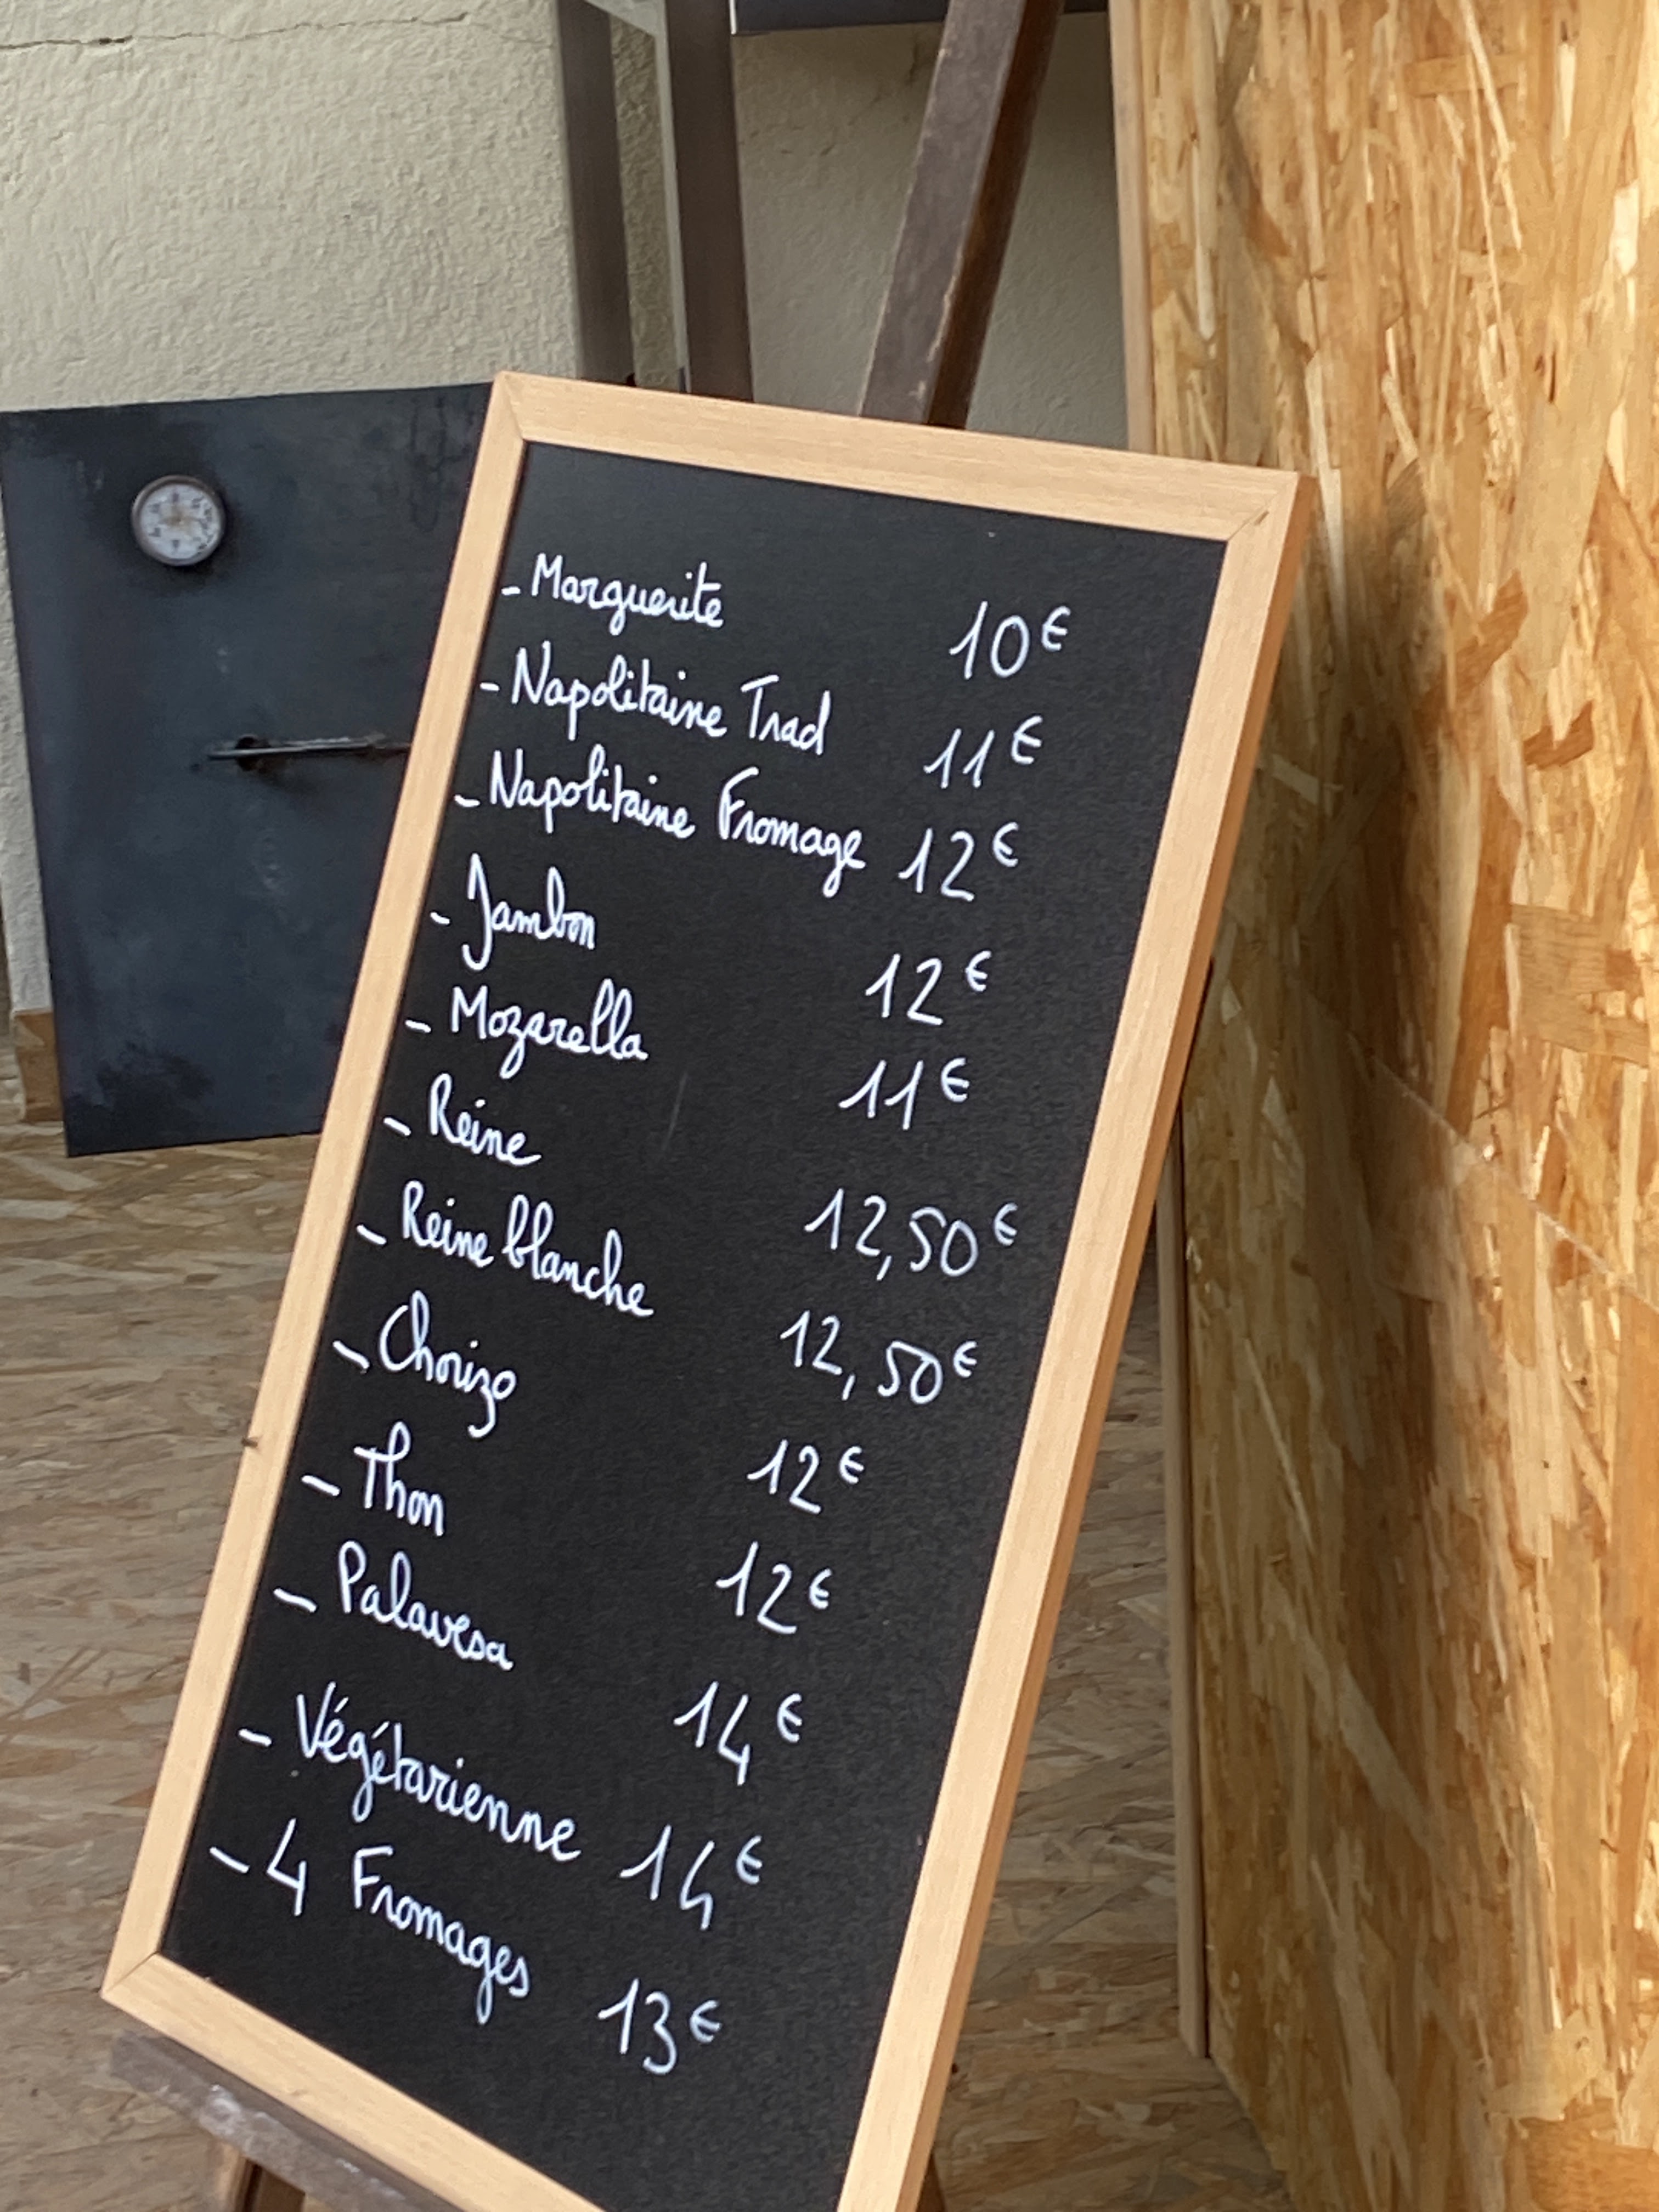 - Marguerite 10€
- Napolitaine Trad 11€
- Napolitaine Fromage 12€
- Jambon 12€
- Mozarella 11€
- Reine 12,50€
- Reine blanche 12,50€
- Chorizo 12€
- Thon 12€
- Palavesa 14€
- Végétarienne 14€
- 4 Fromages 13€